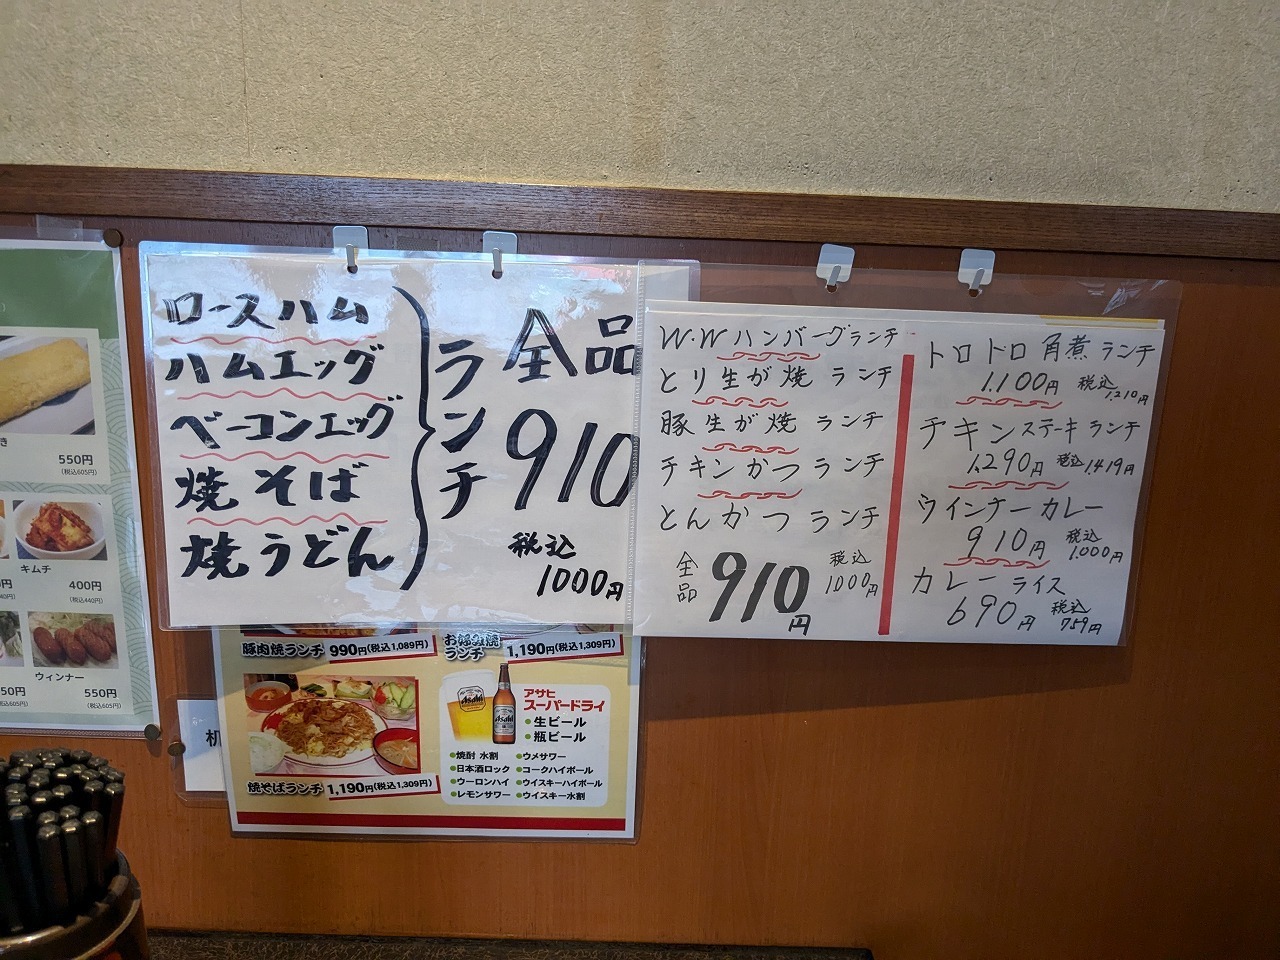 ロースハム
ハムエッグ
ベーコンエッグ
焼そば
焼うどん
ランチ
全品
910
税込
1000円
W.Wハンバーグランチ
とり生が焼 ランチ
豚生が焼 ランチ
チキンかつランチ
とんかつランチ
全品
910円
税込
1000円
トロトロ角煮ランチ
1.100円 税込 1.210円
チキンステーキランチ
1.290円 税込 1.419円
ウインナーカレー
910円 税込 1.000円
カレーライス
690円 税込 759円
き
550円
(税込605円)
キムチ
400円
(税込440円)
ウィンナー
550円
(税込605円)
50円
机
豚肉焼ランチ 990円(税込1,089円)
お好み焼
ランチ 1,190円(税込1,309円)
焼そばランチ 1,190円(税込1,309円)
Asahi
アサヒ
スーパードライ
●生ビール
●瓶ビール
●焼酎 水割
●日本酒ロック
●ウーロンハイ
●レモンサワー
●ウメサワー
●コークハイボール
●ウイスキーハイボール
●ウイスキー水割